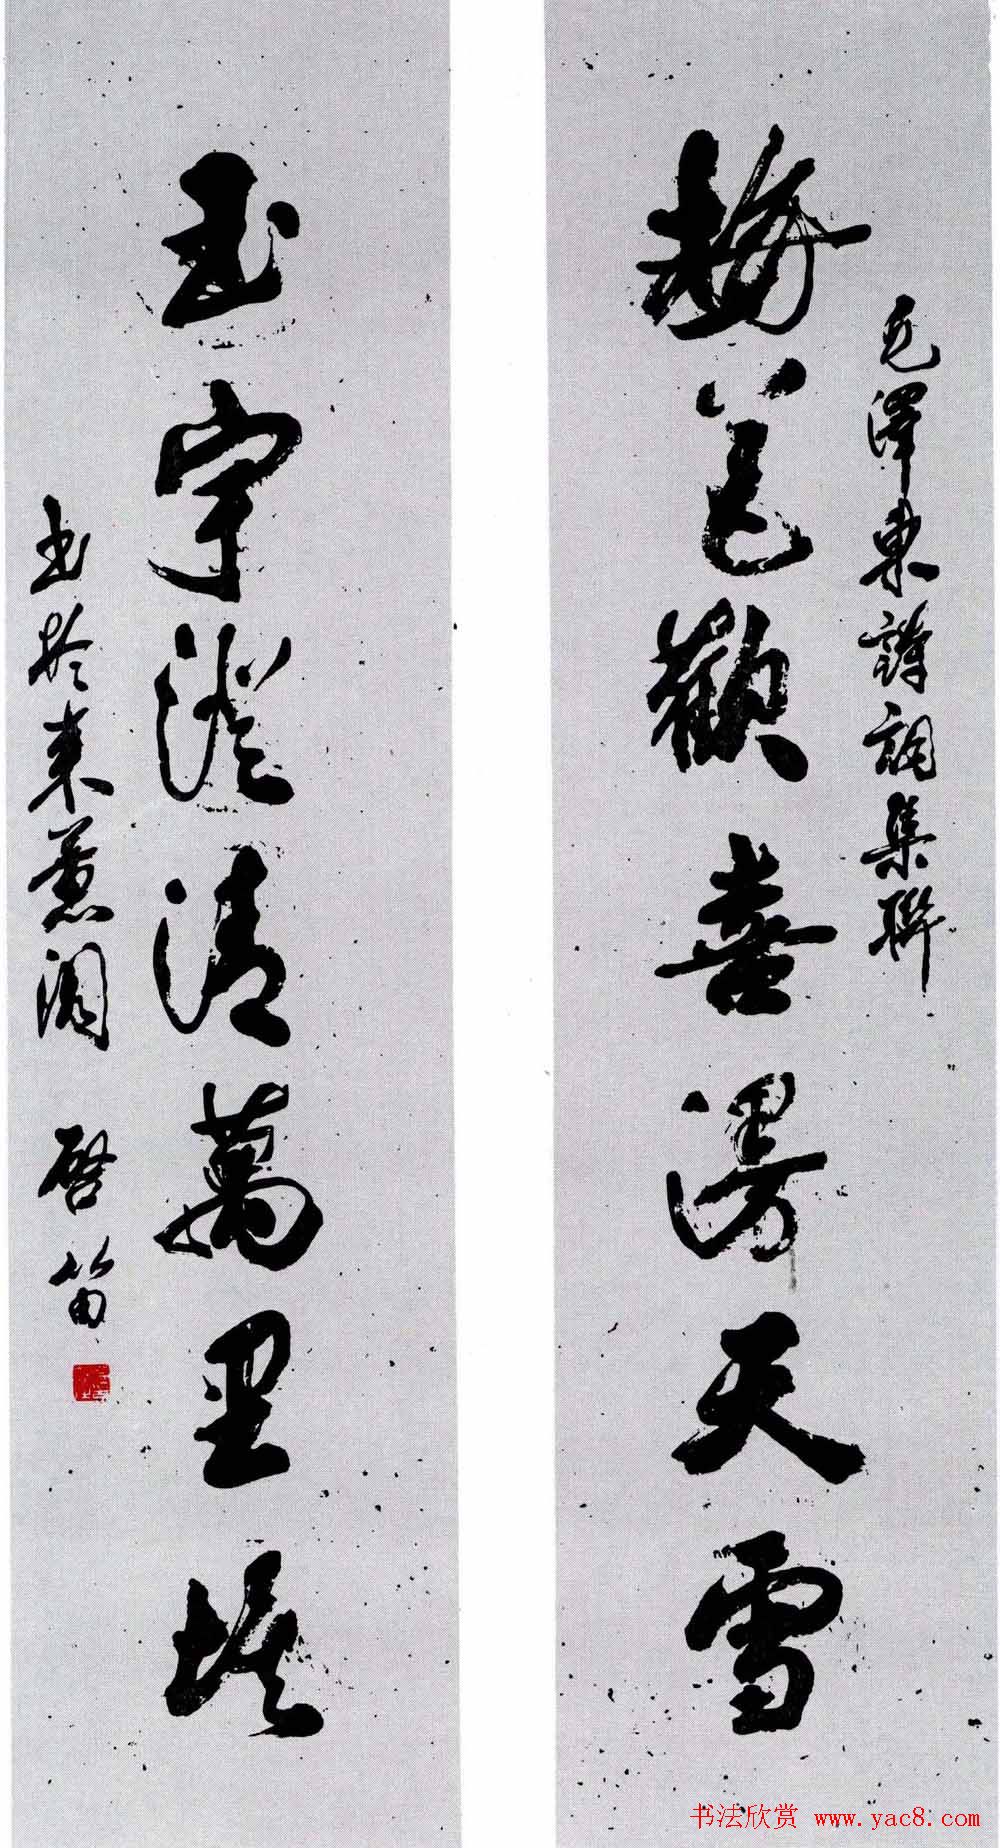 毛澤東詩詞集聯
梅花歡喜漫天雪
玉宇澄清萬里埃
书於東蕙 启笛
书法欣赏 www.yac8.com